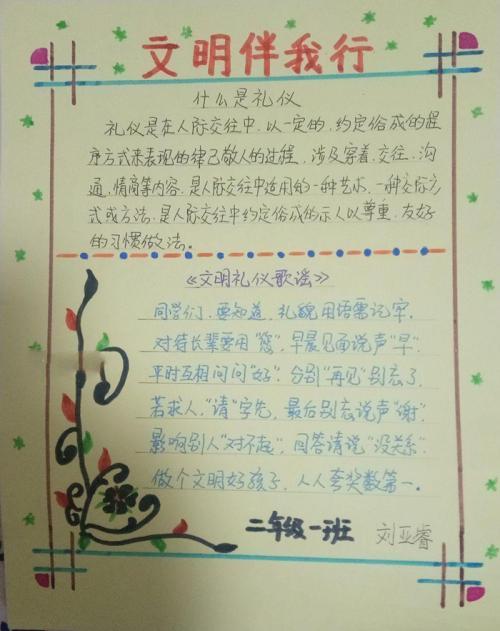 文明伴我行
什么是礼仪
礼仪是在人际交往中，以一定的，约定俗成的程
序方式来表现的律己敬人的过程，涉及穿着，交往，沟
通，情商等内容，是人际交往中适用的一种艺术，一种交际方
式或方法，是人际交往中约定俗成的示人以尊重，友好
的习惯做法。
《文明礼仪歌谣》
同学们，要知道，礼貌用语需记牢，
对待长辈要用“您”，早晨见面说声“早”。
平时互相问问“好”，分别“再见”别忘了，
若求人，“请”字先，最后别忘说声“谢”，
影响别人“对不起”，回答请说“没关系”，
做个文明好孩子，人人夸奖数第一。
二年级一班 刘亚睿